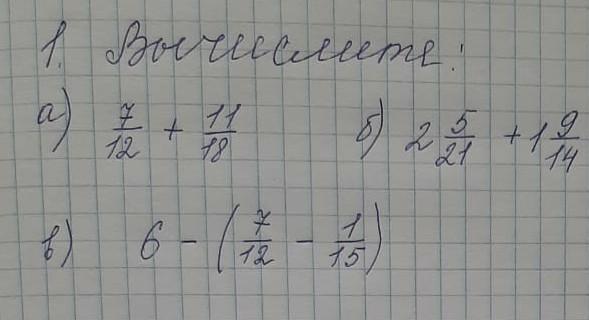 1. Вычислите:
а) 7/12 + 11/18 б) 2 5/21 + 1 9/14
в) 6 - (7/12 - 1/15)